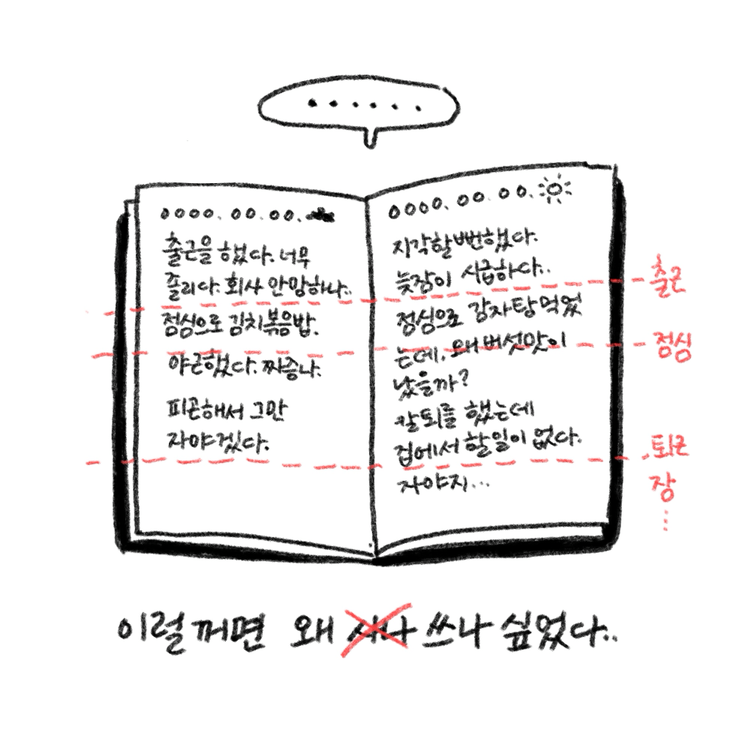 ......
0000.00.00.
출근을 했다. 너무
졸리다. 회사 안망하나..
점심으로 김치볶음밥.
야근했다. 짜증나.
피곤해서 그만
자야겠다.
0000.00.00.
지각할뻔했다.
늦잠이 시급하다..
점심으로 감자탕먹었
는데, 왜 버섯맛이
났을까?
칼퇴를 했는데
집에서 할일이 없다.
자야지...
출근
점심
퇴근
장
이럴꺼면 왜 사나 쓰나 싶었다..